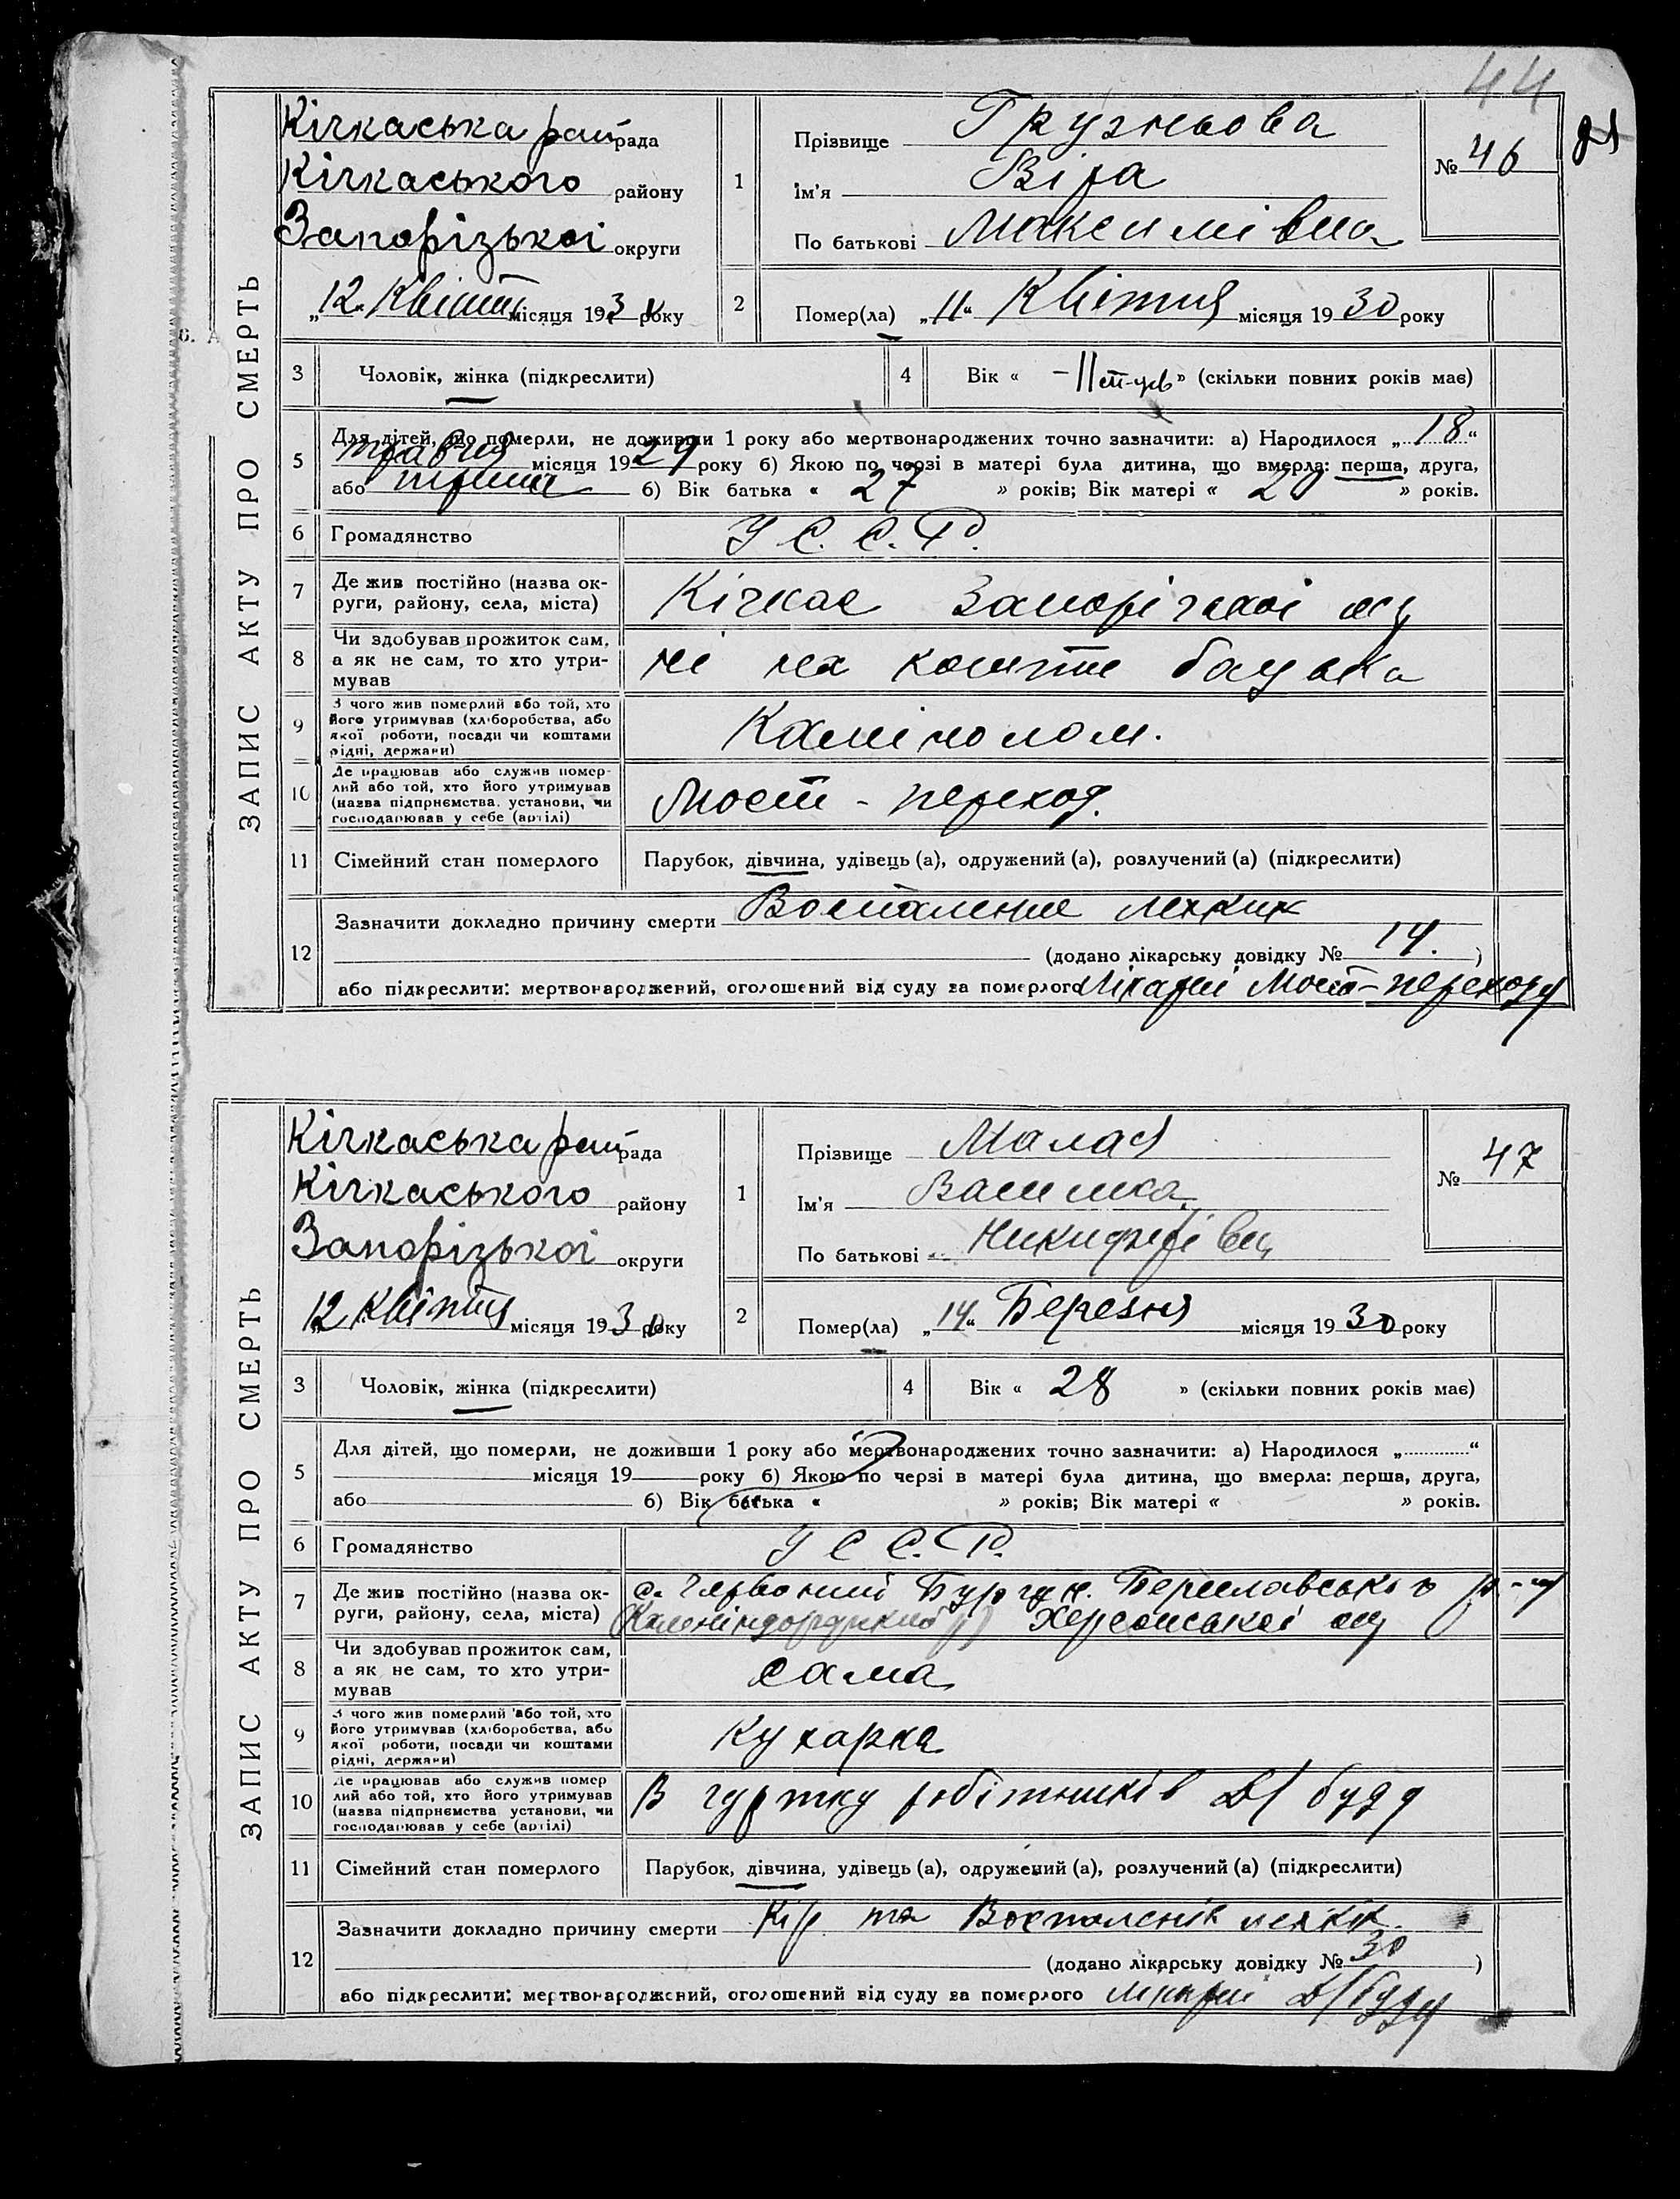 44
ЗАПИС АКТУ ПРО СМЕРТЬ
Кічкаська рай рада
Кічкаського району
Запорізької округи
„12“ Квітня місяця 1930 року
1
Прізвище Грузньова
Ім'я Віра
По батькові Максимівна
№ 46
2
Помер(ла) „11“ Квітня місяця 1930 року
3 Чоловік, жінка (підкреслити)
4 Вік « -11 » (скільки повних років має)
5
Для дітей, що померли, не доживши 1 року або мертвонароджених точно зазначити: а) Народилося „18“
травня місяця 1929 року б) Якою по черзі в матері була дитина, що вмерла: перша, друга,
або перша б) Вік батька « 27 » років; Вік матері « 20 » років.
6 Громадянство У С. С. Р.
7
Де жив постійно (назва ок-
руги, району, села, міста)
Кічкас Запорізької окр
8
Чи здобував прожиток сам,
а як не сам, то хто утри-
мував
ні на кошти батька
9
З чого жив померлий або той, хто
його утримував (хліборобства, або
якої роботи, посади чи коштами
рідні, держави)
Каменолом.
10
Де працював або служив помер-
лий або той, хто його утримував
(назва підприємства, установи, чи
господарював у себе (артілі)
Мост - переход.
11 Сімейний стан померлого Парубок, дівчина, удівець (а), одружений (а), розлучений (а) (підкреслити)
12
Зазначити докладно причину смерти Воспаление легких
(додано лікарську довідку № 14. )
або підкреслити: мертвонароджений, оголошений від суду за померлого Лікарні Мост-переходу
ЗАПИС АКТУ ПРО СМЕРТЬ
Кічкаська рай рада
Кічкаського району
Запорізької округи
„12 Квітня місяця 1930 року
1
Прізвище Малая
Ім'я
По батькові Никифорівна
№ 47
2
Помер(ла) „14“ Березня місяця 1930 року
3 Чоловік, жінка (підкреслити)
4 Вік « 28 » (скільки повних років має)
5
Для дітей, що померли, не доживши 1 року або мертвонароджених точно зазначити: а) Народилося „ “
місяця 19 року б) Якою по черзі в матері була дитина, що вмерла: перша, друга,
або б) Вік батька « » років; Вік матері « » років.
6 Громадянство У С С. Р.
7
Де жив постійно (назва ок-
руги, району, села, міста)
с. Червоний Бургун. Бериславського р-ну
(Калініндорфський р) Херсонської окр
8
Чи здобував прожиток сам,
а як не сам, то хто утри-
мував
сама
9
З чого жив померлий або той, хто
його утримував (хліборобства, або
якої роботи, посади чи коштами
рідні, держави)
Кухарка
10
Де працював або служив помер
лий або той, хто його утримував
(назва підприємства установи, чи
господарював у себе (артілі)
В гуртку робітників Д/буду
11 Сімейний стан померлого Парубок, дівчина, удівець (а), одружений (а), розлучений (а) (підкреслити)
12
Зазначити докладно причину смерти Кір та Воспаленія легких.
(додано лікарську довідку № 30 )
або підкреслити: мертвонароджений, оголошений від суду за померлого лікарні Д/буду